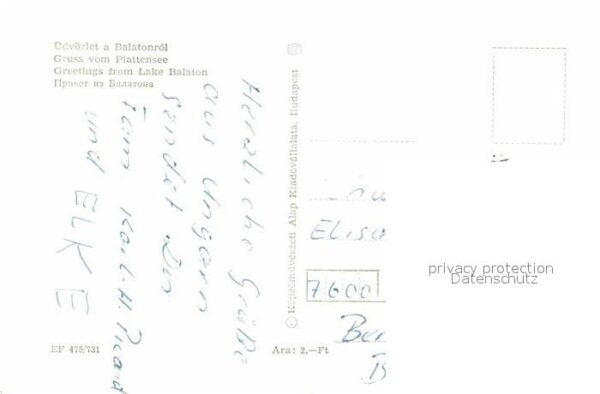 Üdvözlet a Balatonról
Gruss vom Plattensee
Greetings from Lake Balaton
Привет из Балатона
Herzliche Grüße
aus Ungarn
sendet Dir
Fam. Karl-H.
und ELKE
EF 475/731
© Képzőművészeti Alap Kiadóvállalata, Budapest
Ara: 2,—Ft
7600
privacy protection
Datenschutz